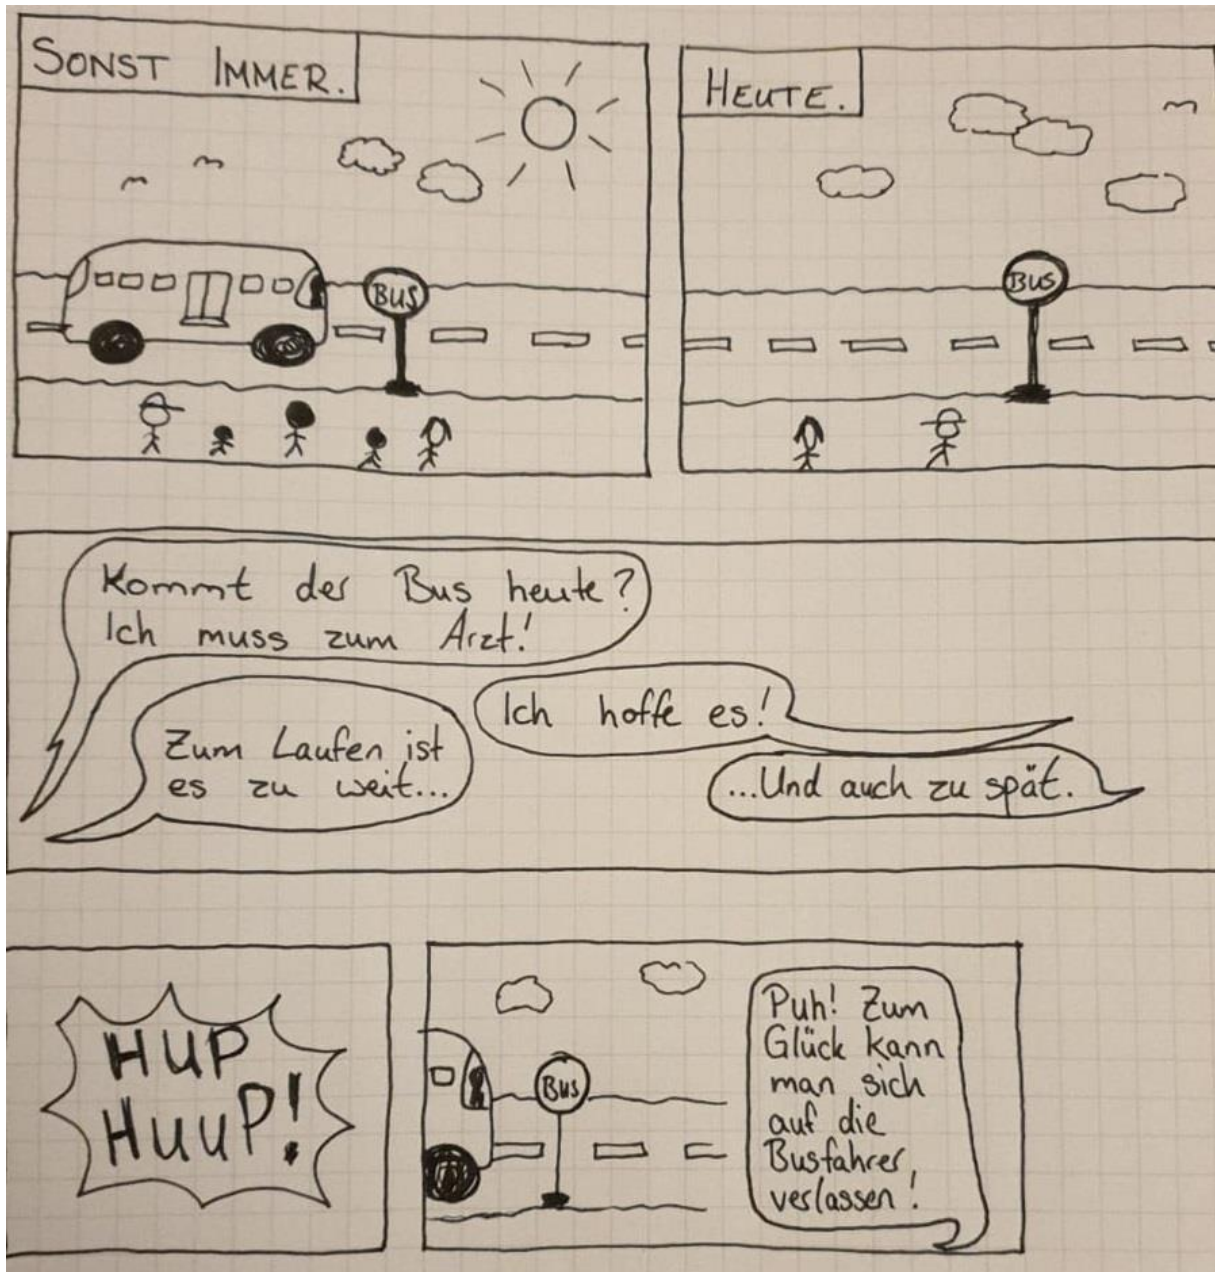 SONST IMMER.
BUS
HEUTE.
BUS
Kommt der Bus heute?
Ich muss zum Arzt!
Ich hoffe es!
Zum Laufen ist
es zu weit...
...Und auch zu spät.
HUP
HUUP!
BUS
Puh! Zum
Glück kann
man sich
auf die
Busfahrer,
verlassen!